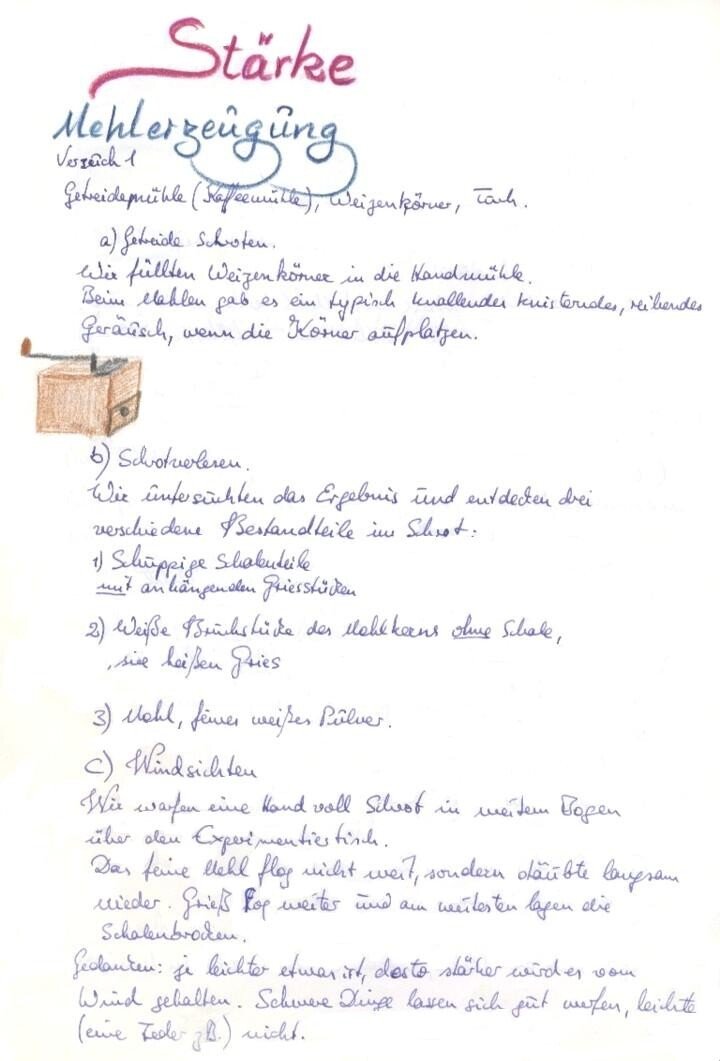 Stärke
Mehlerzeugung
Versuch 1
Getreidemühle (Kaffeemühle), Weizenkörner, Tuch.
a) Getreide Schroten.
Wir füllten Weizenkörner in die Handmühle.
Beim Mahlen gab es ein typisch knallendes knisterndes, reibendes
Geräusch, wenn die Körner aufplatzen.
b) Schrotverlesen.
Wir untersuchten das Ergebnis und entdecken drei
verschiedene Bestandteile im Schrot:
1) Schuppige Schalenteile
mit anhängenden Griesstücken
2) Weiße Bruchstücke des Mehlkerns ohne Schale,
sie heißen Gries
3) Mehl, feines weißes Pulver.
C) Windsichten
Wir warfen eine Hand voll Schrot in weitem Bogen
über den Experimentiertisch.
Das feine Mehl flog nicht weit, sondern stäubte langsam
nieder. Grieß flog weiter und am weitesten lagen die
Schalenbrocken.
Gedanken: je leichter etwas ist, desto stärker wird es vom
Wind gehalten. Schwere Dinge lassen sich gut werfen, leichte
(eine Feder z.B.) nicht.